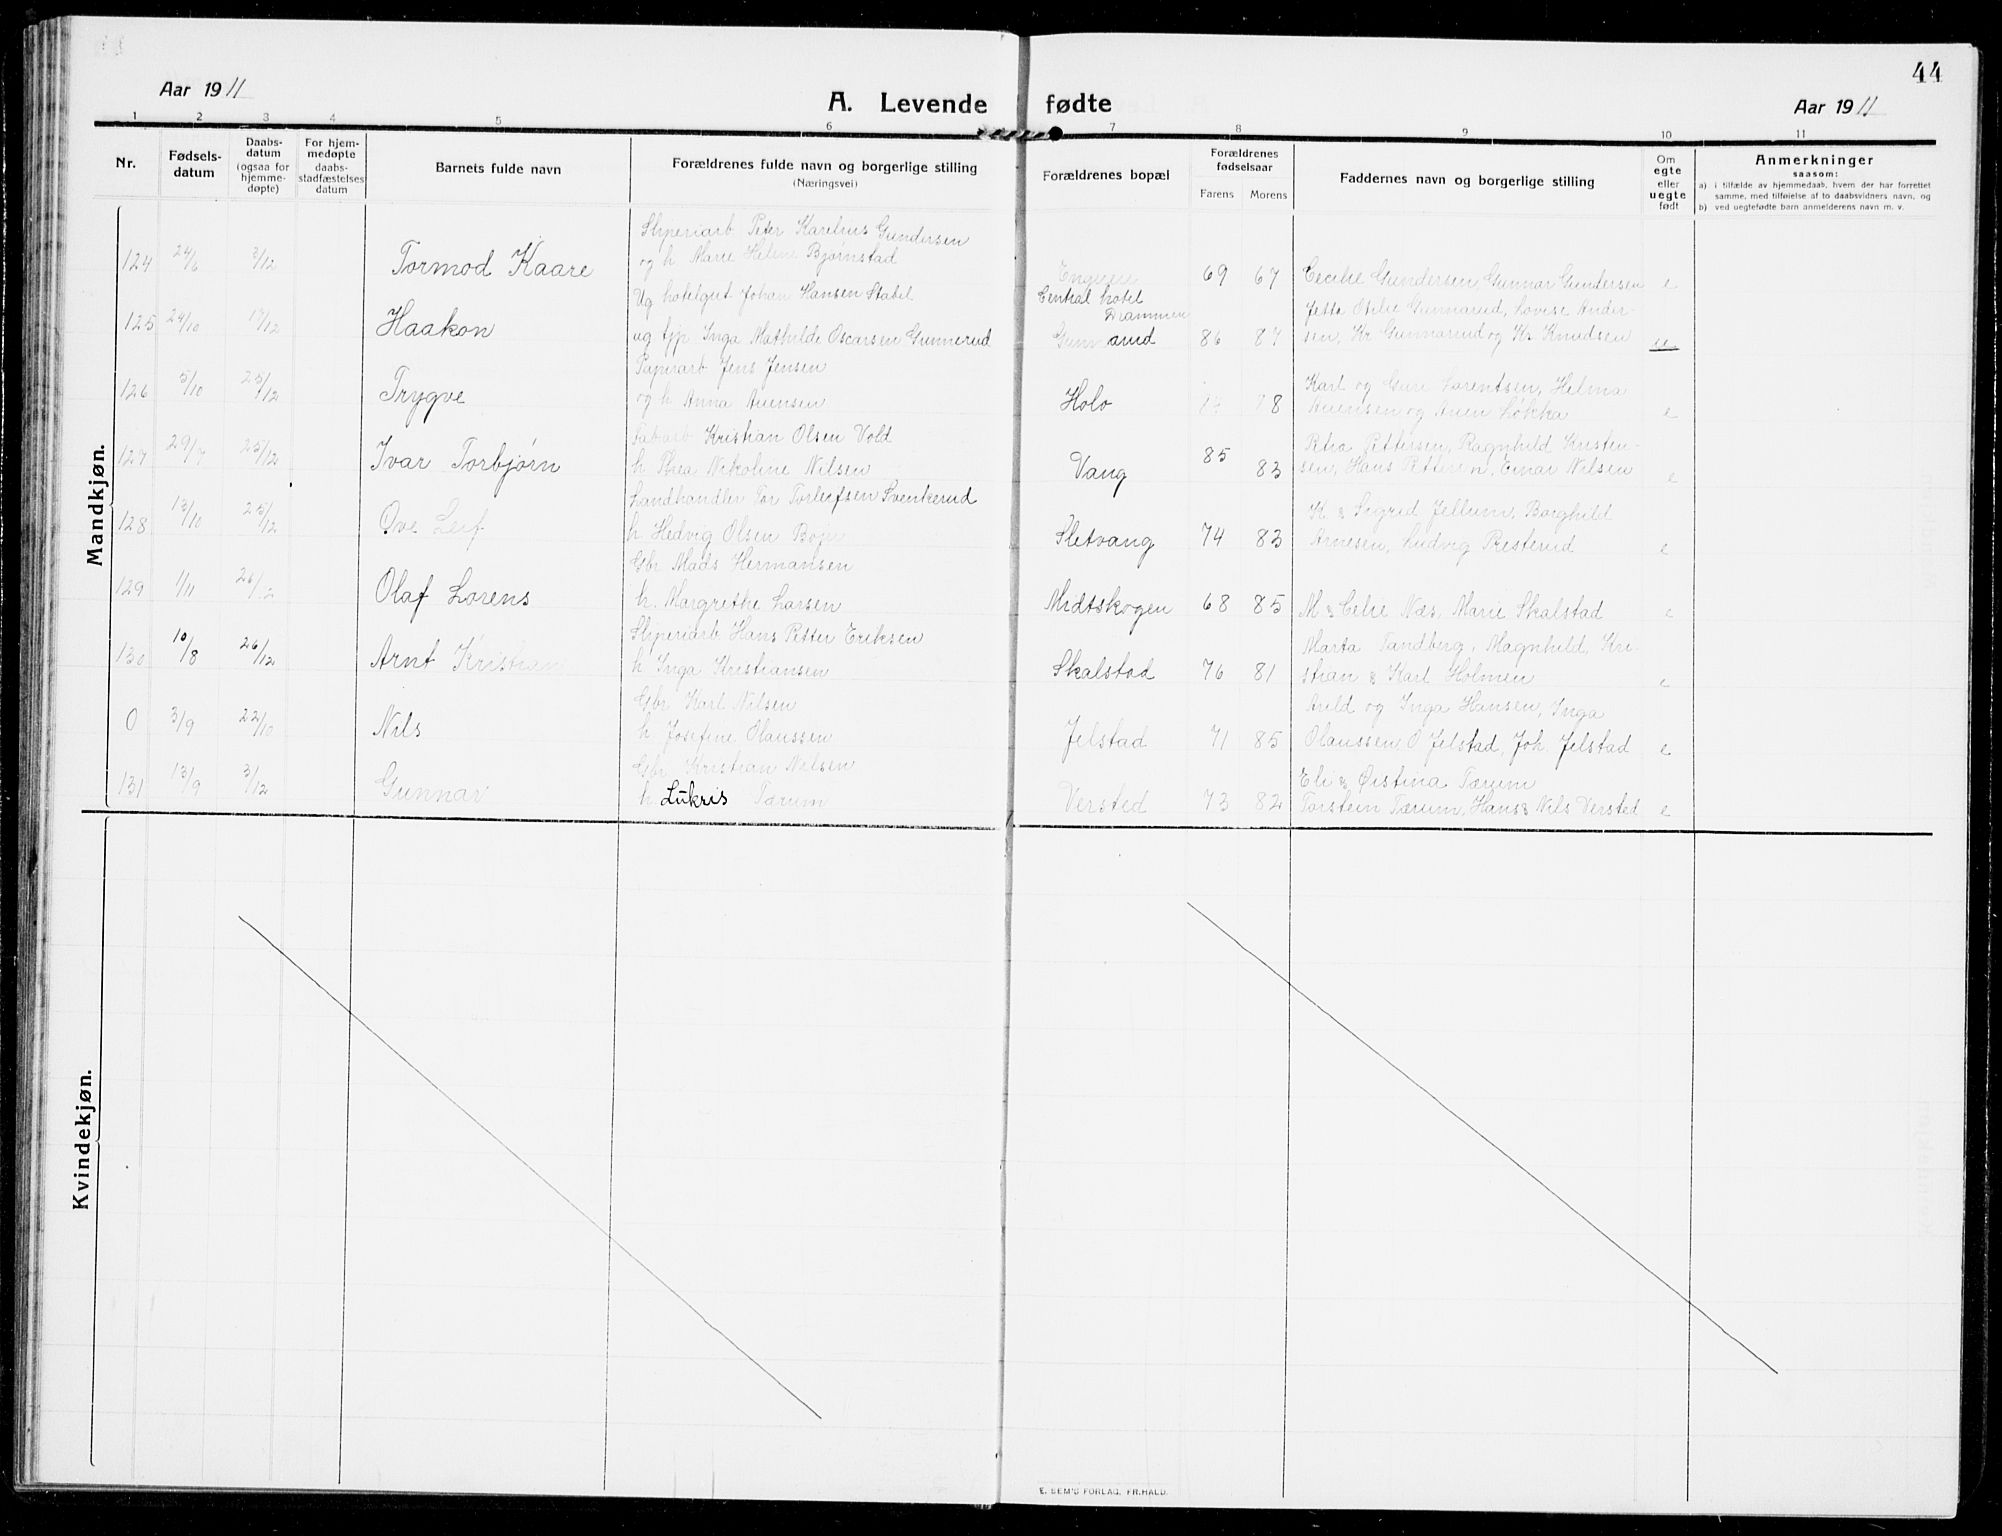 44
Aar 1911
A. Levende fødte
Aar 1911
1 2 3 4 5 6 7 8 9 10 11
Nr.
Fødsels-
datum
Daabs-
datum
(ogsaa for
hjemme-
døpte)
For hjem-
medøpte
daabs-
stadfæstelses
datum
Barnets fulde navn
Forældrenes fulde navn og borgerlige stilling
(Næringsvei)
Forældrenes bopæl
Forældrenes
fødselsaar
Farens Morens
Faddernes navn og borgerlige stilling
Om
egte
eller
uegte
født
Anmerkninger
saasom:
a) i tilfælde av hjemmedaab, hvem der har forrettet
samme, med tilføielse af to daabsvidners navn, og
b) ved uegtefødte barn anmelderens navn m. v.
Mandkjøn.
Sliperiarb Peter Karelius Gundersen
124 24/6 3/12 Tormod Kaare og h Marie Helene Bjørnstad 69 67 Cecilie Gundersen, Gunnar Gundersen e
Ug hotelgut Johan Hansen Stabel Central hotel Drammen Jetta Otilie Gunnarud, Lovise Ander-
125 24/10 17/12 Haakon ug tjp Inga Mathilde Oscarsen Gunnerud Gunnarud 86 87 sen, Kr Gunnarud og Kr Knudsen u
Papirarb Jens Jensen Karl og Gure Larentsen, Helma
126 5/10 25/12 Trygve og h Anna Auensen Holo 78 Auensen og Auen Løkka e
Fabarb Kristian Olsen Vold Petra Pettersen, Ragnhild Kristen-
127 29/7 25/12 Ivar Torbjørn h Thea Nikoline Nilsen Vang 85 83 sen, Hans Pettersen, Einar Nilsen e
Landhandler Tor Torleifsen Svenkerud K & Sigrid Jellum, Borghild
128 13/10 25/12 Ove Leif h Hedvig Olsen Sletvang 74 83 Arnesen, Ludvig Presterud e
Gbr Mads Hermansen
129 1/11 26/12 Olaf Lorens h. Margrethe Larsen Midtskogen 68 85 M & Celie Næs, Marie Skalstad e
Sliperiarb Hans Petter Eriksen Marta Tandberg, Magnhild, Kri-
130 10/8 26/12 Arnt Kristian h Inga Kristiansen Skalstad 76 81 stian & Karl Holmen e
Gbr Karl Nilsen Arild og Inga Hansen, Inga
0 3/9 22/10 Nils h Josefine Olaussen Jelstad 71 85 Olaussen, O Jelstad, Joh. Jelstad e
Gbr Kristian Nilsen Eli & Øistina Tærum
131 13/9 3/12 Gunnar h Lukris Tærum Versted 73 82 Torstein Tærum, Hans & Nils Versted e
Kvindekjøn.
E. SEM'S FORLAG, FR.HALD.